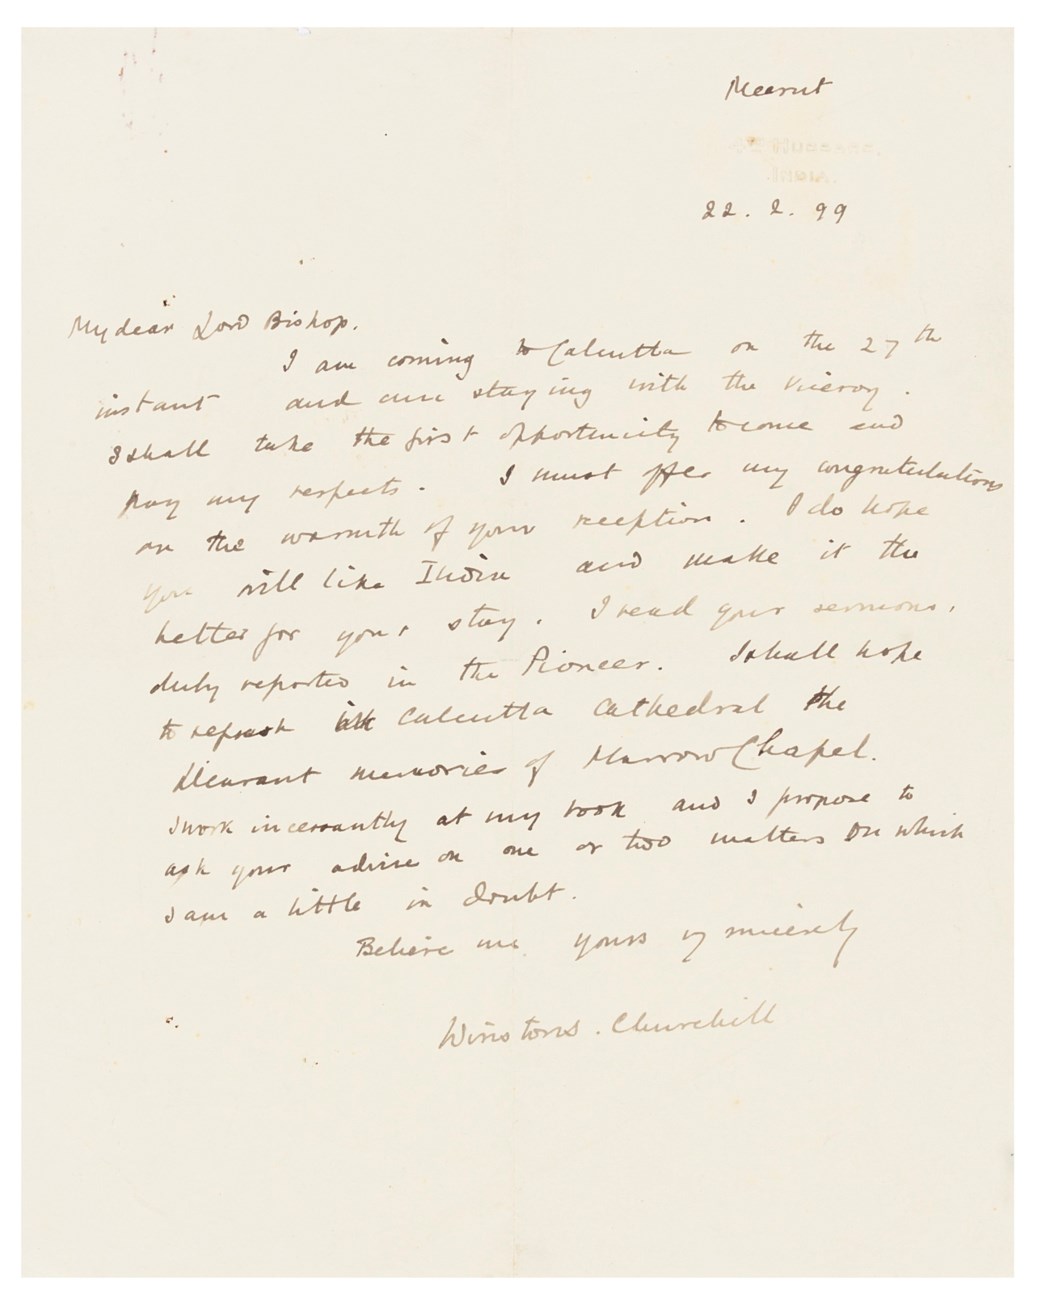 Meerut
4th Hussars.
India.
22. 2. 99
My dear Lord Bishop.
I am coming to Calcutta on the 27th
instant and am staying with the Viceroy.
I shall take the first opportunity to come and
pay my respects. I must offer my congratulations
on the warmth of your reception. I do hope
you will like India and make it the
better for your stay. I read your sermons,
duly reported in the Pioneer. I shall hope
to refresh in Calcutta Cathedral the
pleasant memories of Harrow Chapel.
I work incessantly at my book and I propose to
ask your advice on one or two matters on which
I am a little in doubt.
Believe me yours vy sincerely
Winston S. Churchill